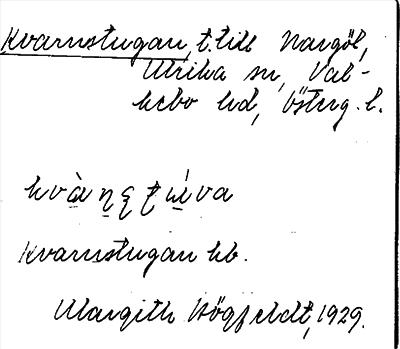 Kvarnstugan, t. till Norrgöl,
Ulrika sn, Val-
kebo hd, Österg. l.
Kvarnstugan hb.
Margith Högfeldt, 1929.